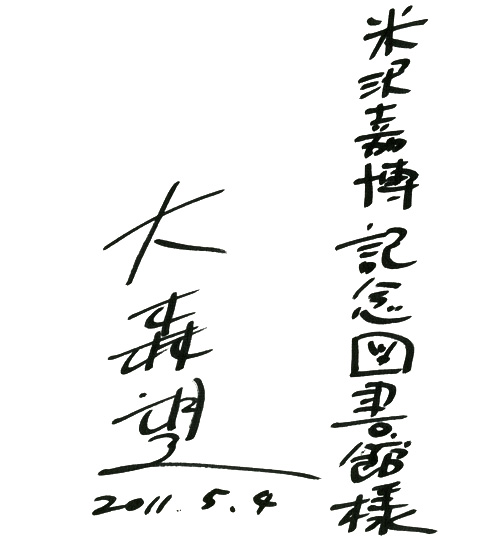 米沢嘉博記念図書館様
大森望
2011.5.4